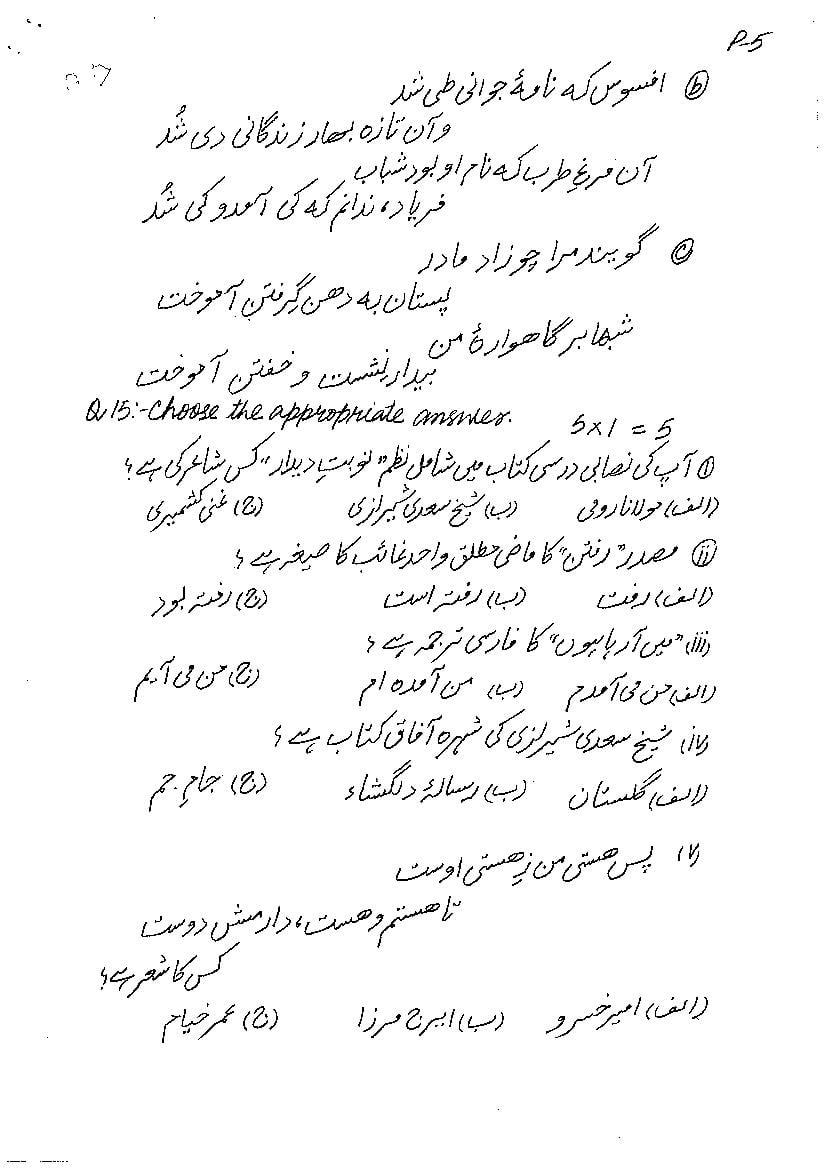 P-5
ⓑ افسوس که نامۀ جوانی طی شد
و آن تازه بهار زندگانی دی شُد
آن مرغِ طرب که نام او بود شباب
فریاد، ندانم که کی آمد و کی شُد
ⓒ گویند مرا چو زاد مادر
پستان به دهن گِرفتن آموخت
شبها بر گاهوارۀ من
بیدار نِشست و خفتن آموخت
Q.15:- Choose the appropriate answer. 5x1 = 5
(i) آپ کی نصابی درسی کتاب میں شامل نظم "نوبتِ دیدار" کس شاعر کی ہے؟
(الف) مولانا رومی (ب) شیخ سعدی شیرازی (ج) غنی کشمیری
(ii) مصدر "رفتن" کا ماضی مطلق واحد غائب کا صیغہ ہے؟
(الف) رفت (ب) رفتہ است (ج) رفتہ بود
(iii) "میں آرہا ہوں" کا فارسی ترجمہ ہے؟
(الف) من می آمدم (ب) من آمدہ ام (ج) من می آیم
(iv) شیخ سعدی شیرازی کی شہرہ آفاق کتاب ہے؟
(الف) گلستان (ب) رسالۂ دلگشاء (ج) جامِ جم
(v) پس هستی من زِ هستی اوست
تا هستم و هست، دارمش دوست
کس کا شعر ہے؟
(الف) امیر خسرو (ب) ایرج مرزا (ج) عمر خیام